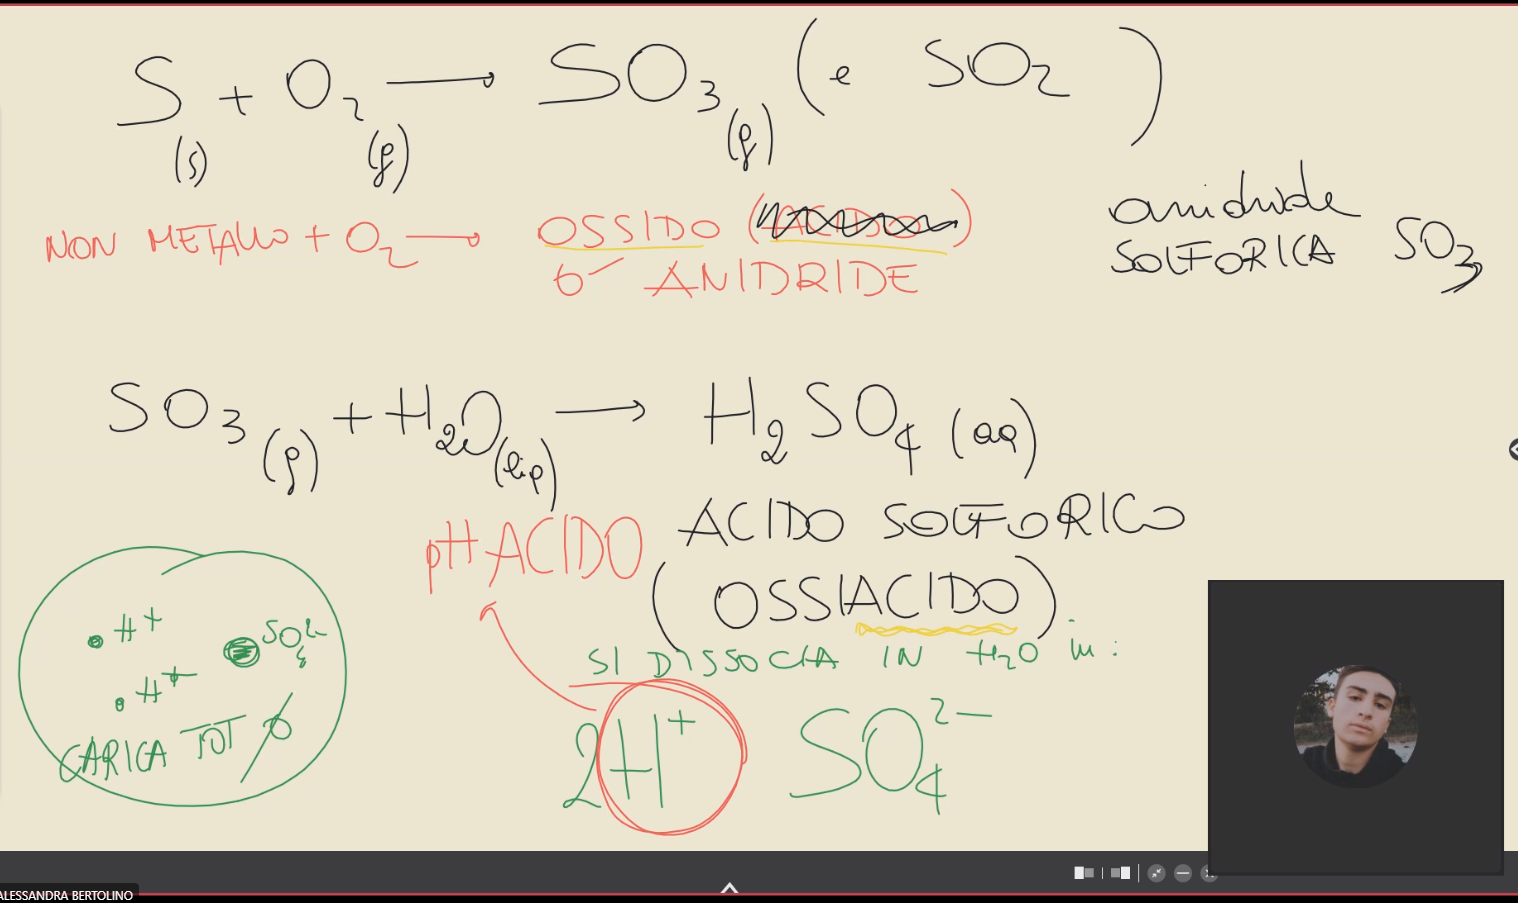 S(s) + O2(g) → SO3(g) (e SO2)
NON METALLO + O2 → OSSIDO ( )
o ANIDRIDE
anidride
SOLFORICA SO3
SO3(g) + H2O(liq) → H2SO4(aq)
pH ACIDO
ACIDO SOLFORICO
(OSSIACIDO)
SI DISSOCIA IN H2O in:
2H+ SO4 2-
H+ SO4 2-
H+
CARICA TOT 0
ALESSANDRA BERTOLINO